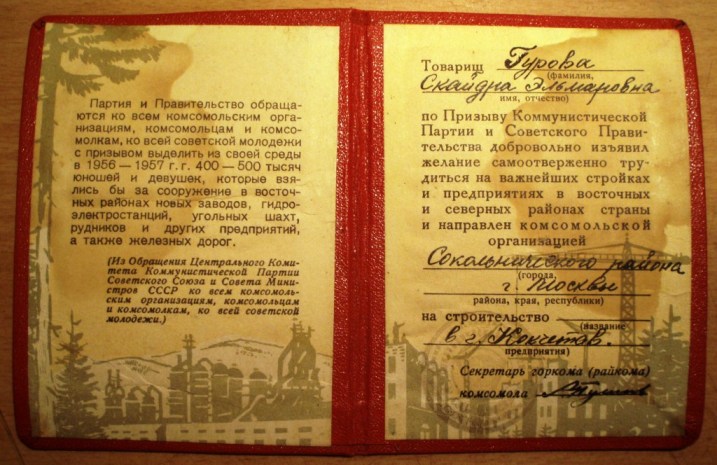 Партия и Правительство обраща-
ются ко всем комсомольским орга-
низациям, комсомольцам и комсо-
молкам, ко всей советской молодежи
с призывом выделить из своей среды
в 1956 — 1957 г.г. 400 — 500 тысяч
юношей и девушек, которые взя-
лись бы за сооружение в восточ-
ных районах новых заводов, гидро-
электростанций, угольных шахт,
рудников и других предприятий,
а также железных дорог.
(Из Обращения Центрального Коми-
тета Коммунистической Партии
Советского Союза и Совета Мини-
стров СССР ко всем комсомоль-
ским организациям, комсомольцам
и комсомолкам, ко всей советской
молодежи.)
Товарищ Гурова
(фамилия,
Скайдра Эльмаровна
имя, отчество)
по Призыву Коммунистической
Партии и Советского Прави-
тельства добровольно изъявил
желание самоотверженно тру-
диться на важнейших стройках
и предприятиях в восточных
и северных районах страны
и направлен комсомольской
организацией
Сокольнического района
(города,
г. Москвы
района, края, республики)
на строительство
(название
в г. Кокчетав.
предприятия)
Секретарь горкома (райкома)
комсомола